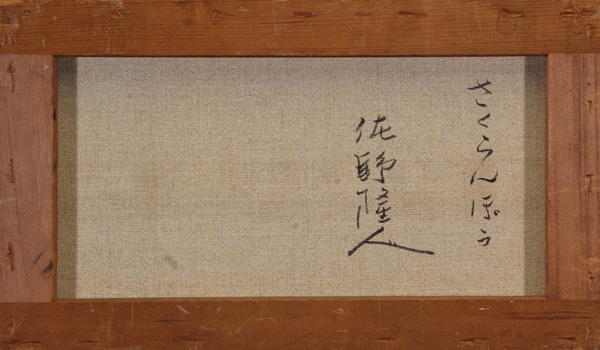 さくらんぼう
佐野隆人